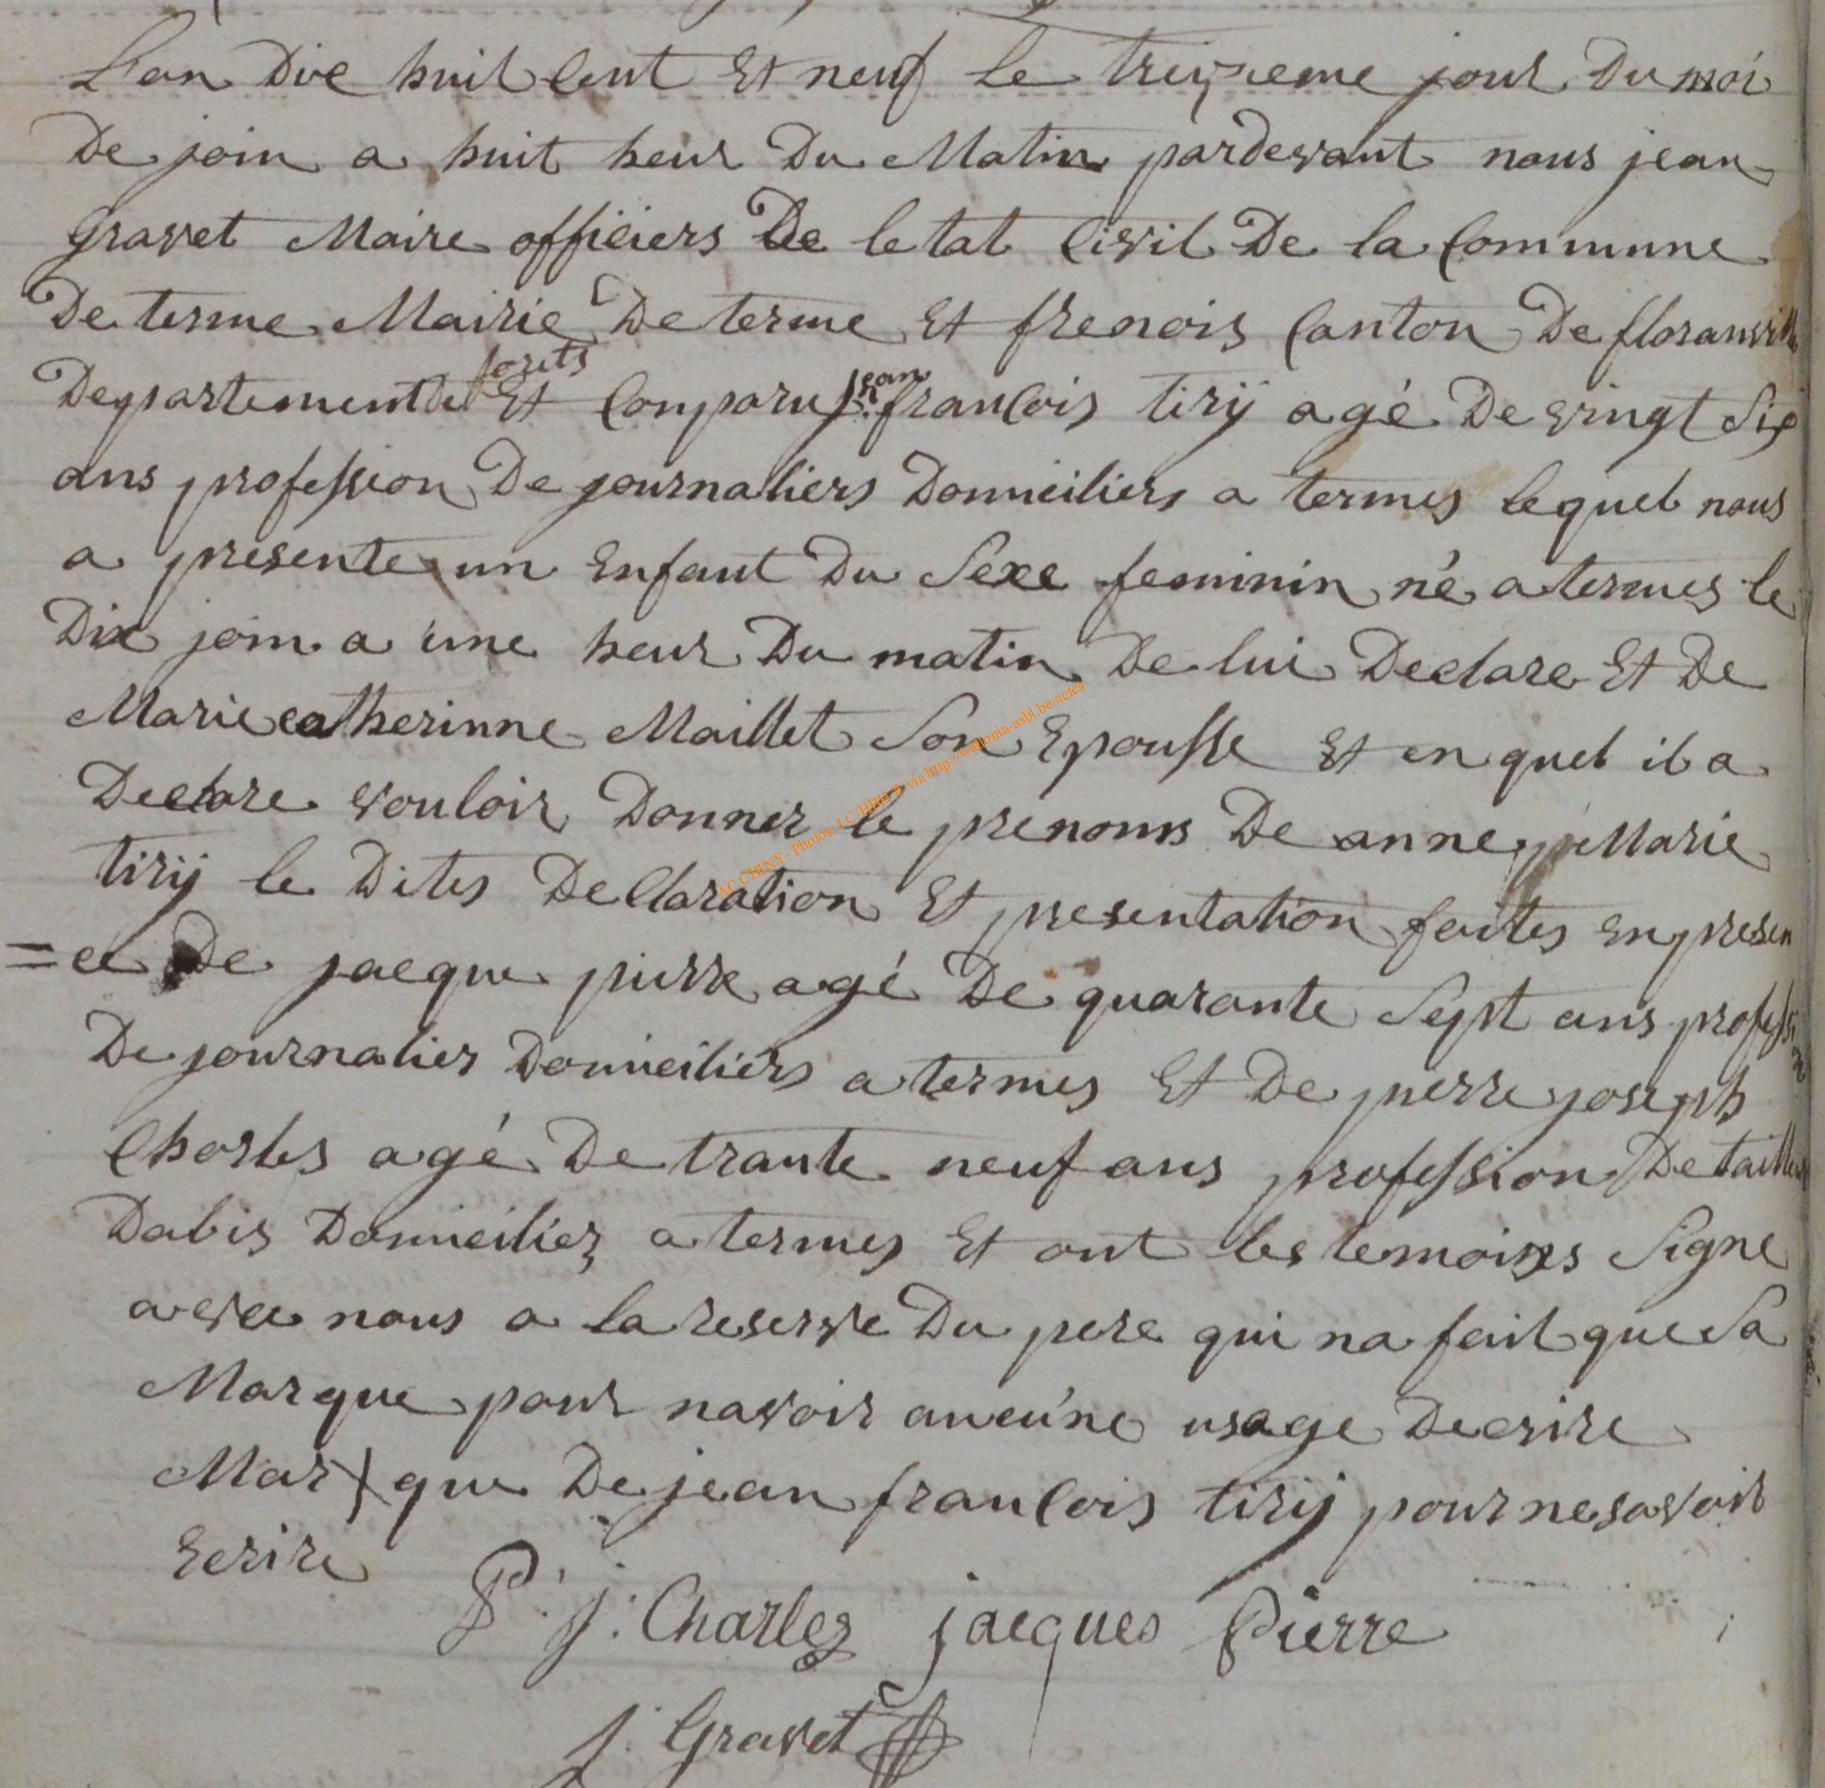 L'an Dix huit Cent Et neuf Le treizieme jour Du moi
De join a huit heur Du Matin pardevant nous jean
Gravet Maire officiers De letat Civil De la Commune
De terme Mairie De terme Et frenois Canton De floranvill
forets
Departement de Et Comparu jean francois tirij agé De vringt Six
ans profession De journaliers Domiciliers a termes lequel nous
a presente un Enfant Du Sexe feminin né a termes le
Dix join a une heur Du matin De lui Declare Et De
Marie catherinne Maillet Son Epousse Et en quel il a
Declare vouloir Donner le prenoms De anne Marie
tirij le Dites DeClaration Et presentation faites En presen
=ce De jacque pierre agé De quarante Sept ans profession
De journalier Domiciliers a termes Et De pierre joseph
Charles agé De trante neuf ans profession De tailleur
Dabis Domiciliez a termes Et ont les temoins Signe
avec nous a la reserve Du pere qui na fait que Sa
Marque pour navoir aucune usage Decrire
Mar + que De jean francois tirij pour ne savoir
Ecrire
P. j. Charles jacques Pierre
j. Gravet
AC CHINY - Photos: J.C HBH @ via http://wallonia-asbl.be/actes